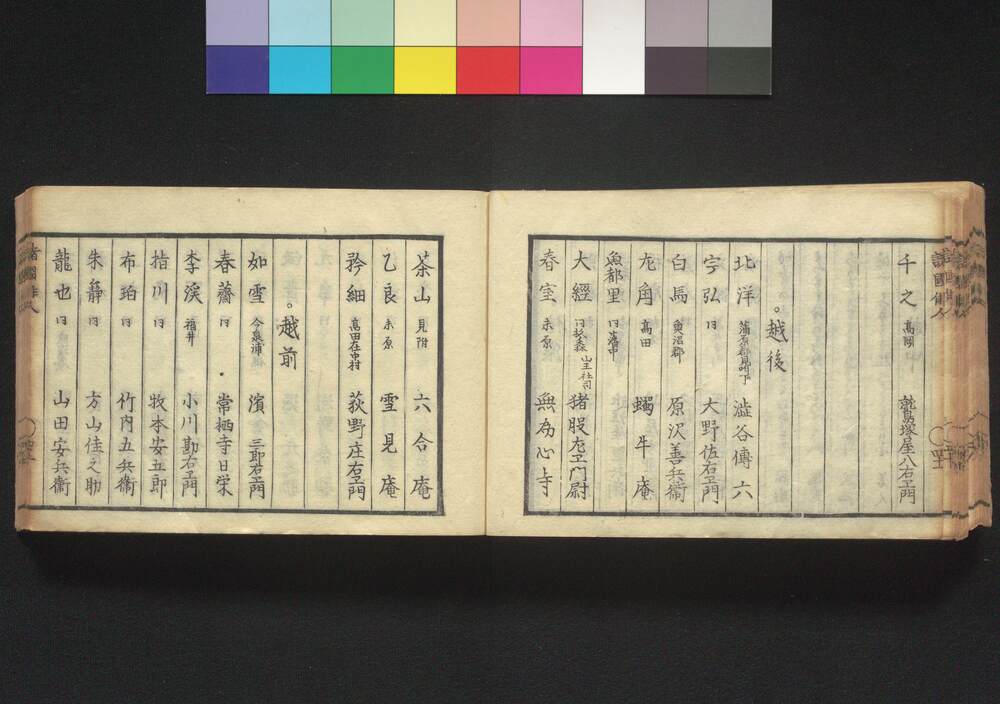 千之 高岡 鷲塚屋八右エ門
。越後
北洋 蒲原郡見附下 澁谷傳六
字弘 仝 大野佐右エ門
白馬 魚沼郡 原沢善兵衞
尢角 高田 蝸牛庵
魚都里 仝藩中
大經 仝 山王社司 猪股左エ門尉
春室 未原 無為心寺
茶山 見附 六合庵
乙良 未原 雪見庵
矜細 高田在中村 荻野庄右エ門
。越前
如雪 今泉浦 濱三郎右エ門
春薺 仝 常栖寺日栄
李溪 福井 小川勘右エ門
指川 仝 牧本安五郎
布珀 仝 竹内五兵衞
朱静 仝 方山佳之助
龍也 仝 山田安兵衞